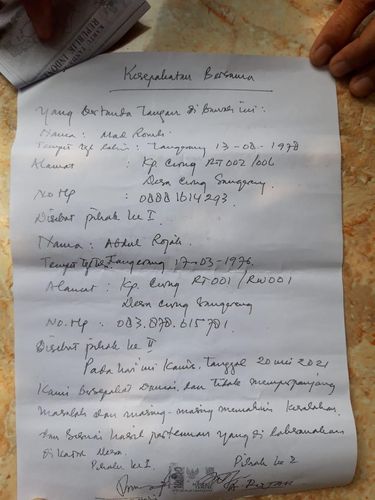 KARTU KELUARGA
REPUBLIK INDONESIA
Kesepakatan Bersama
Yang bertanda tangan di bawah ini :
Nama :
Tempat tgl lahir : Tangerang 13-08-1978
Alamat : Kp. Cirung RT 002 / 006
Desa Cirung
No Hp : 08881614293.
Disebut pihak ke I.
Nama : Abdul Rojak.
Tempat tgl lahir Tangerang 17-03-1976.
Alamat : Kp. Cirung RT001 / RW001
Desa Cirung
No. Hp : 083.878.615781.
Disebut pihak ke II
Pada hari ini Kamis, Tanggal 20 mei 2021
Kami bersepakat Damai, dan tidak memperpanjang
masalah dan masing-masing memahami kesalahan.
dan sesuai hasil pertemuan yang di laksanakan
di kantor Desa.
Pihak ke I. Pihak ke 2